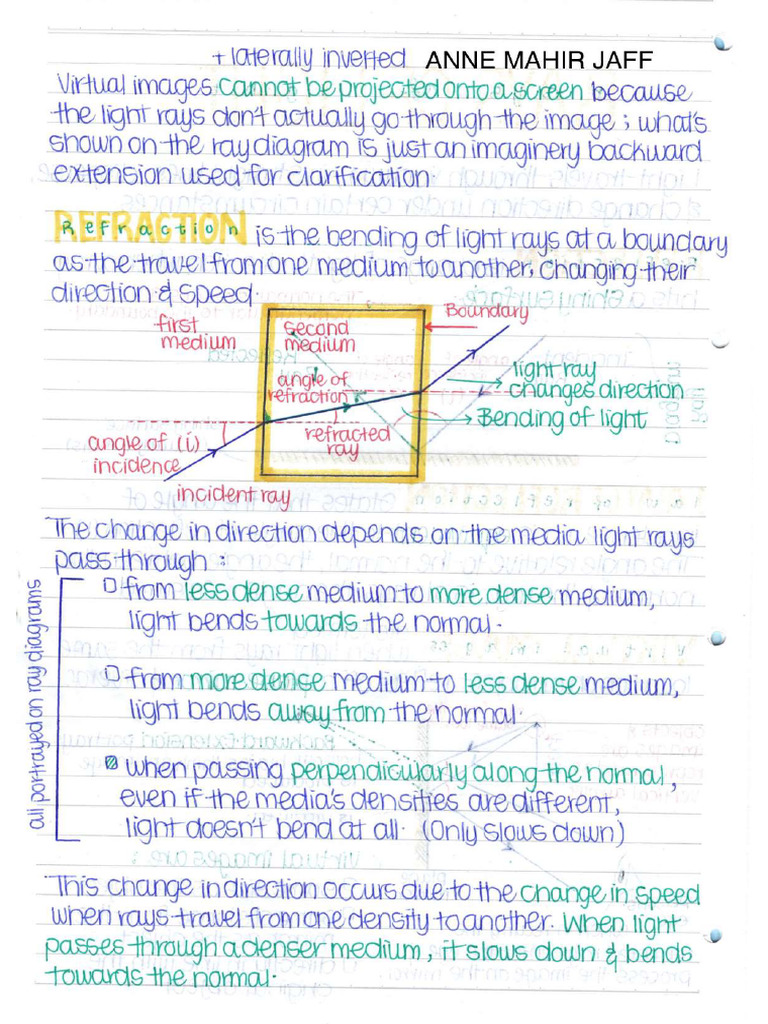 + laterally inverted ANNE MAHIR JAFF
Virtual images cannot be projected onto a screen because
the light rays don't actually go through the image ; what's
shown on the ray diagram is just an imaginery backward
extension used for clarification.
REFRACTION is the bending of light rays at a boundary
as the travel from one medium to another, changing their
direction & speed.
Boundary
first
medium
second
medium
light ray
changes direction
angle of
refraction
Bending of light
refracted
ray
angle of (i)
incidence
incident ray
The change in direction depends on the media light rays
pass through :
from less dense medium to more dense medium,
light bends towards the normal.
from more dense medium to less dense medium,
light bends away from the normal.
when passing perpendicularly along the normal,
even if the media's densities are different,
light doesn't bend at all. (Only slows down)
all portrayed on ray diagrams
This change in direction occurs due to the change in speed
when rays travel from one density to another. When light
passes through a denser medium, it slows down & bends
towards the normal.